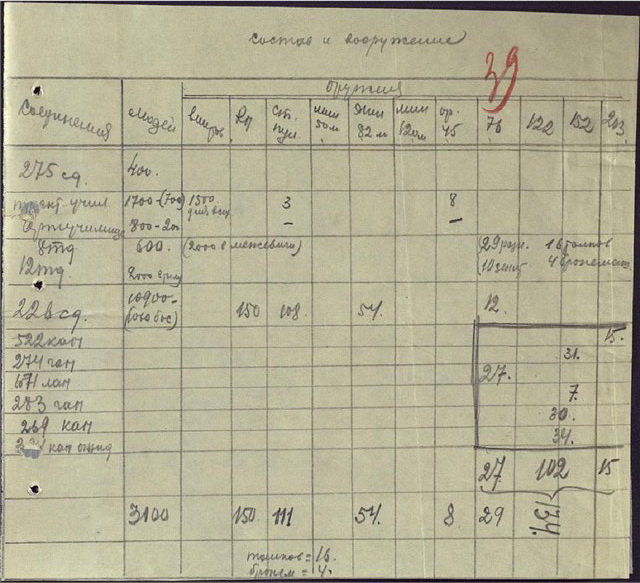 состав и вооружение
39
Оружия
Соединения людей винтов РП ст. пул. мин 50м мин 82м мин 120м ор. 45 76 122 152 203
275 сд. 400.
учил 1700-(700) 1500 для всех 3 8
Артучилище 800-200 – –
8тд 600. (2000 с ) 29 16 танков
12тд 2000 10 зенит 4 бронемаш
226 сд. 10900- 150 108 54 12.
522 кап 15.
274 гап 31.
671 лап 27.
283 гап 7.
269 кап 30.
кап 34.
27 102 15
3100 150 111 54 8 29 134.
танков = 16.
бронем = 4.